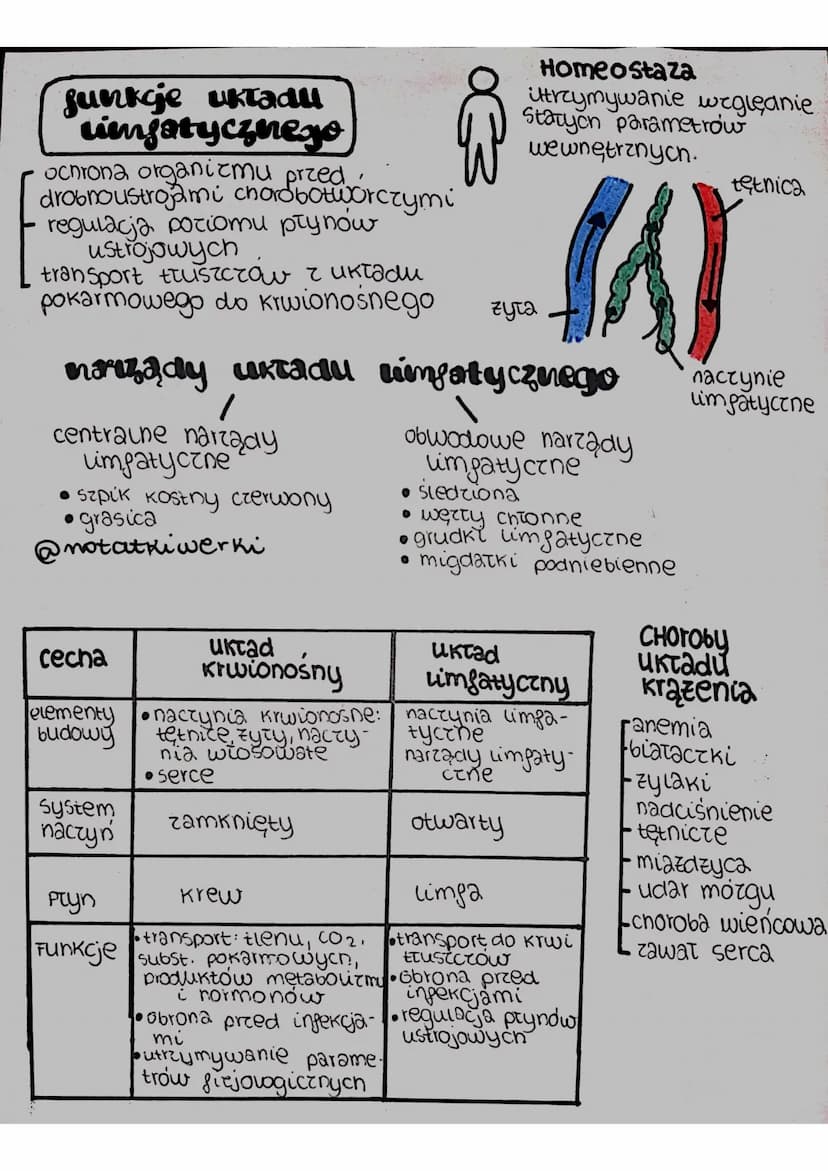 funkcje układu
limfatycznego
ochrona organizmu przed
drobnoustrojami chorobotwórczymi
regulacja poziomu płynów
ustrojowych
transport tłuszczów z układu
pokarmowego do krwionośnego
Homeostaza
utrzymywanie względnie
stałych parametrów
wewnętrznych.
tętnica
żyła
naczynie
limfatyczne
narządy układu limfatycznego
centralne narządy
limfatyczne
• szpik kostny czerwony
• grasica
@notatkiwerki
obwodowe narządy
limfatyczne
• śledziona
• węzły chłonne
• grudki limfatyczne
• migdałki podniebienne
cecha
układ
krwionośny
układ
limfatyczny
elementy
budowy
• naczynia krwionośne:
tętnice, żyły, naczy-
nia włosowate
• serce
naczynia limfa-
tyczne
narządy limfaty-
czne
system
naczyń
zamknięty
otwarty
płyn
krew
limfa
Funkcje
• transport: tlenu, CO2,
subst. pokarmowych,
produktów metabolizmu
i hormonów
• obrona przed infekcja-
mi
• utrzymywanie parame-
trów fizjologicznych
• transport do krwi
tłuszczów
• obrona przed
infekcjami
• regulacja płynów
ustrojowych
CHOROBY
UKŁADU
KRĄŻENIA
- anemia
- białaczki
- żylaki
nadciśnienie
- tętnicze
- miażdżyca
- udar mózgu
- choroba wieńcowa
- zawał serca